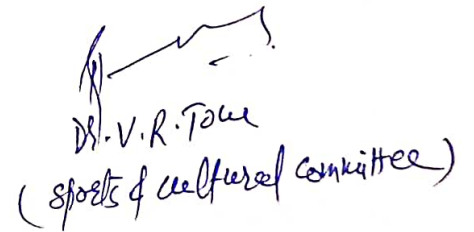 Dr. V. R. Towe
(sports & cultural committee)